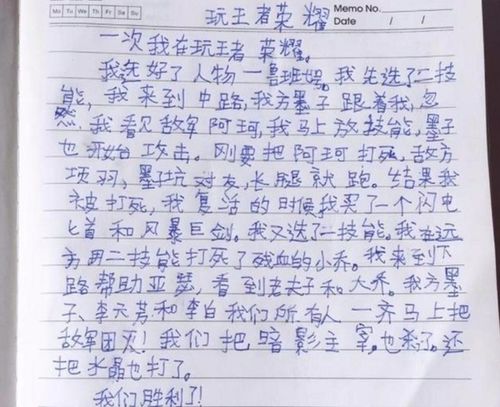 Mo Tu We Th Fr Sa Su
玩王者荣耀
Memo No.
Date / /
一次我在玩王者荣耀。
我选好了人物一鲁班号。我先选了二技
能,我来到中路,我方墨子跟着我,忽
然我看见敌军阿珂,我马上放技能,墨子
也开始攻击。刚要把阿珂打死,敌方
项羽,墨坑对友,长腿就跑。结果我
被打死,我复活的时候我买了一个闪电
匕首和风暴巨剑。我又选了一技能。我在远
方用二技能打死了残血的小乔。我来到下
路帮助亚瑟,看到老夫子和大乔。我方墨
子、李元芳和李白我们所有人一齐马上把
敌军团灭!我们把暗影主宰,也杀了。还
把水晶也打了。
我们胜利了!